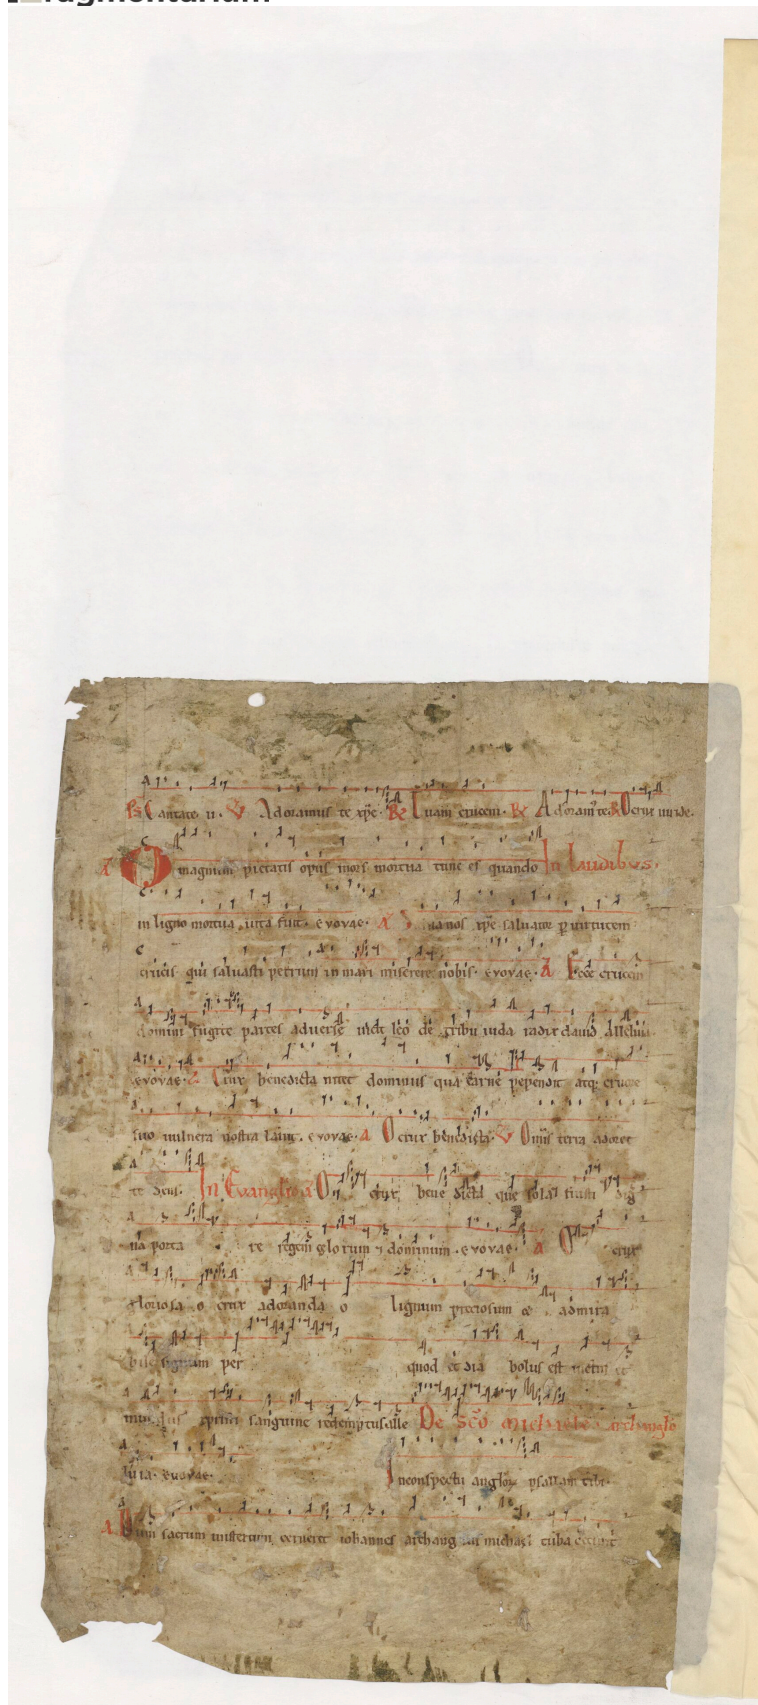 Ps Cantate ii. V Adoramus te xp̄e. R Tuam crucem. R Adoram᷒ te. R O crux uiride.
A O magnum pietatis opus mors mortua tunc es quando In laudibus.
in ligno mortua uita fuit. evovae. A Saluanos xp̄e saluator p̄ uirtutem
crucis qui saluasti petrum in mari miserere nobis. evovae. A Ecce crucem
domini fugite partes aduerse uicit leo de tribu iuda radix dauid alleluia
evovae. A Crux benedicta nitet dominus qua carne pependit atq; cruore
suo uulnera nostra lauit. evovae. A O crux benedicta. V Omnis terra adoret
te deus. In Evanglio A O crux bene dicta que sola fuisti dig
na porta re regem celorum ⁊ dominum. evovae. A O crux
gloriosa o crux adoranda o lignum preciosum et admira
bile signum per quod et dia bolus est uictus et
mundus xpisti sanguine redemptus alle De sc̄o michaele archanglo
luia. evovae. Inconspectu anglor̄ psallam tibi.
A Dum sacrum misterium cerneret iohannes archangelus michael tuba cecinit